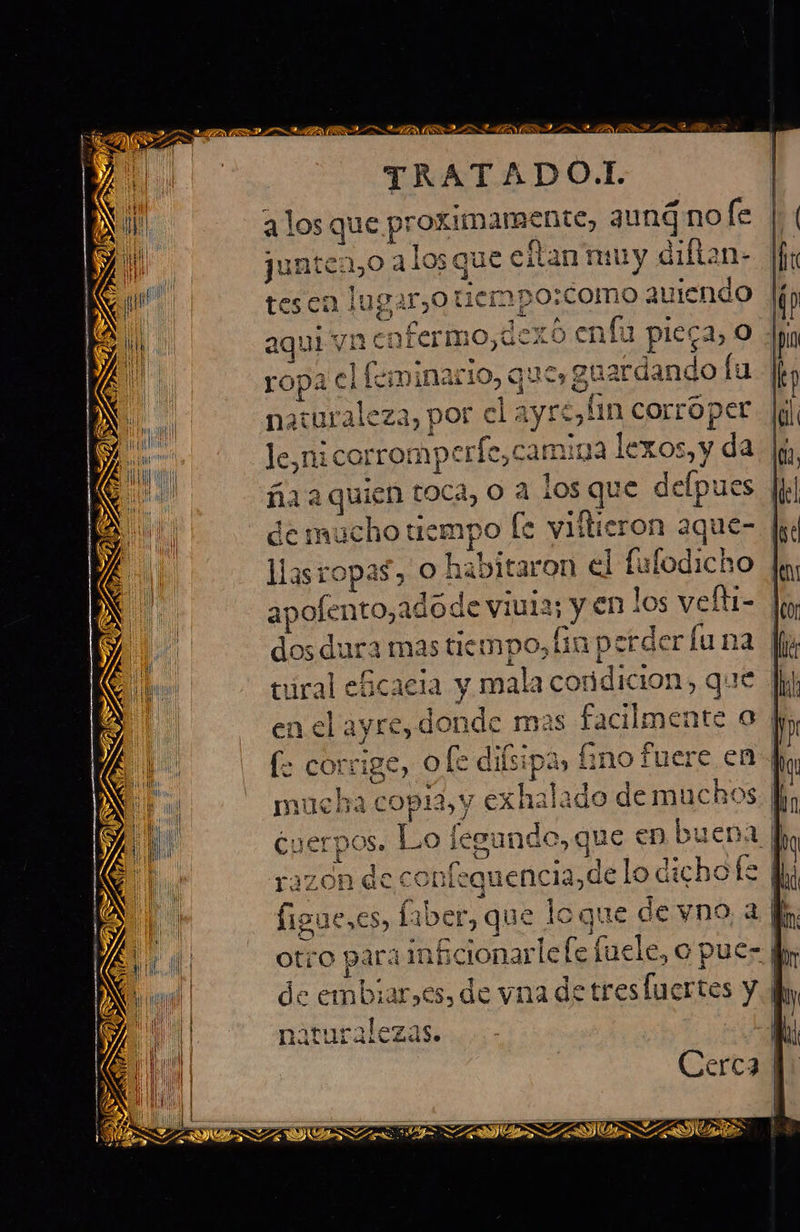 TRATADO.I.
a los que proximamente, aunq̃ no ſe
junten,o a los que eſtan muy diſtan-
tes en lugar,o tiempo:como auiendo
aqui vn enfermo,dexò en ſu pieça, o
ropa el ſeminario, que, guardando ſu
naturaleza, por el ayre,ſin corrõper
le,ni corromperſe,camina lexos,y da
ña a quien toca, o a los que deſpues
de mucho tiempo ſe viſtieron aque-
llas ropas, o habitaron el ſuſodicho
apoſento,adõde viuia; y en los veſti-
dos dura mas tiempo,ſin perder ſu na
tural eficacia y mala condicion, que
en el ayre, donde mas facilmente o
ſe corrige, o ſe diſsipa, ſino fuere en
mucha copia,y exhalado de muchos
cuerpos. Lo ſegundo, que en buena
razon de conſequencia,de lo dicho ſe
ſigue,es, ſaber, que lo que de vno a
otro para inficionarle ſe ſuele, o pue-
de embiar,es, de vna de tres ſuertes y
naturalezas.
Cerca